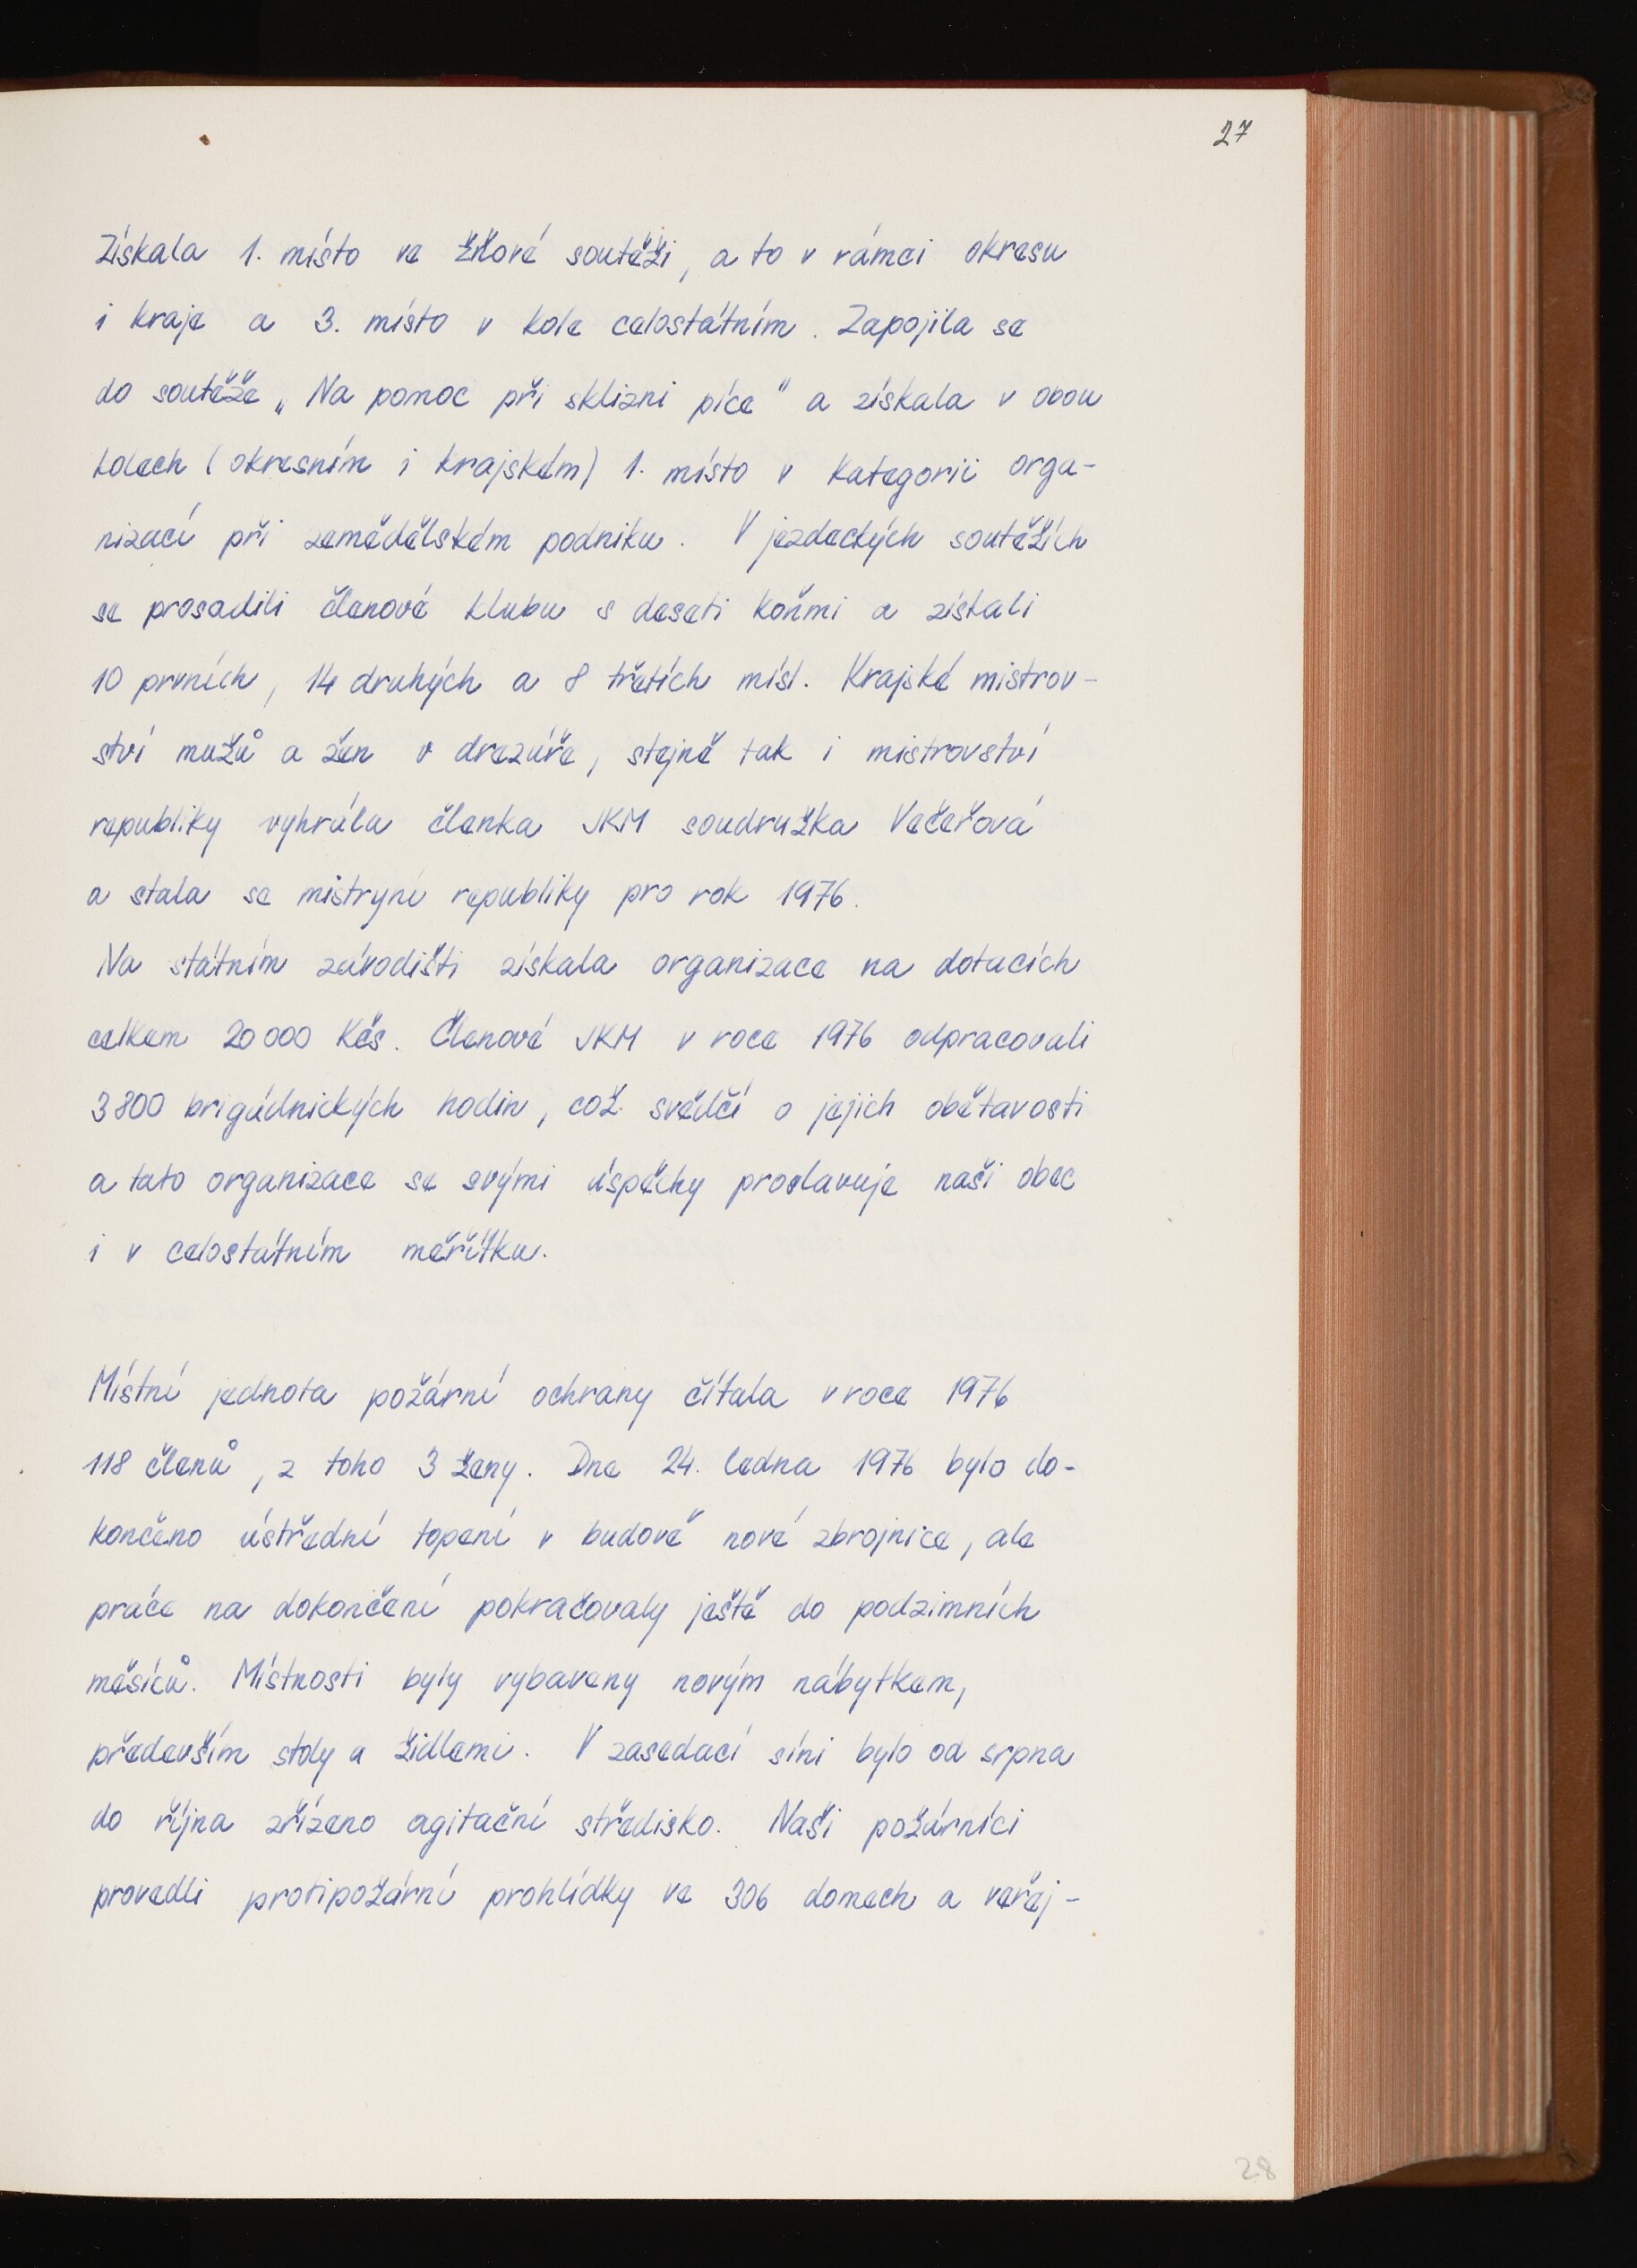 27
Získala 1. místo ve žňové soutěži, a to v rámci okresu
i kraje a 3. místo v kole celostátním. Zapojila se
do soutěže „Na pomoc při sklizni píce" a získala v obou
kolech (okresním i krajském) 1. místo v kategorii orga-
nizací při zemědělském podniku. V jezdeckých soutěžích
se prosadili členové klubu s deseti koňmi a získali
10 prvních, 14 druhých a 8 třetích míst. Krajské mistrov-
ství mužů a žen v drezúře, stejně tak i mistrovství
republiky vyhrála členka JKM soudružka Večeřová
a stala se mistryní republiky pro rok 1976.
Na státním závodišti získala organizace na dotacích
celkem 20 000 Kčs. Členové JKM v roce 1976 odpracovali
3 800 brigádnických hodin, což svědčí o jejich obětavosti
a tato organizace se svými úspěchy proslavuje naši obec
i v celostátním měřítku.
Místní jednota požární ochrany čítala v roce 1976
118 členů, z toho 3 ženy. Dne 24. ledna 1976 bylo do-
končeno ústřední topení v budově nové zbrojnice, ale
práce na dokončení pokračovaly ještě do podzimních
měsíců. Místnosti byly vybaveny novým nábytkem,
především stoly a židlemi. V zasedací síni bylo od srpna
do října zřízeno agitační středisko. Naši požárníci
provedli protipožární prohlídky ve 306 domech a veřej-
28